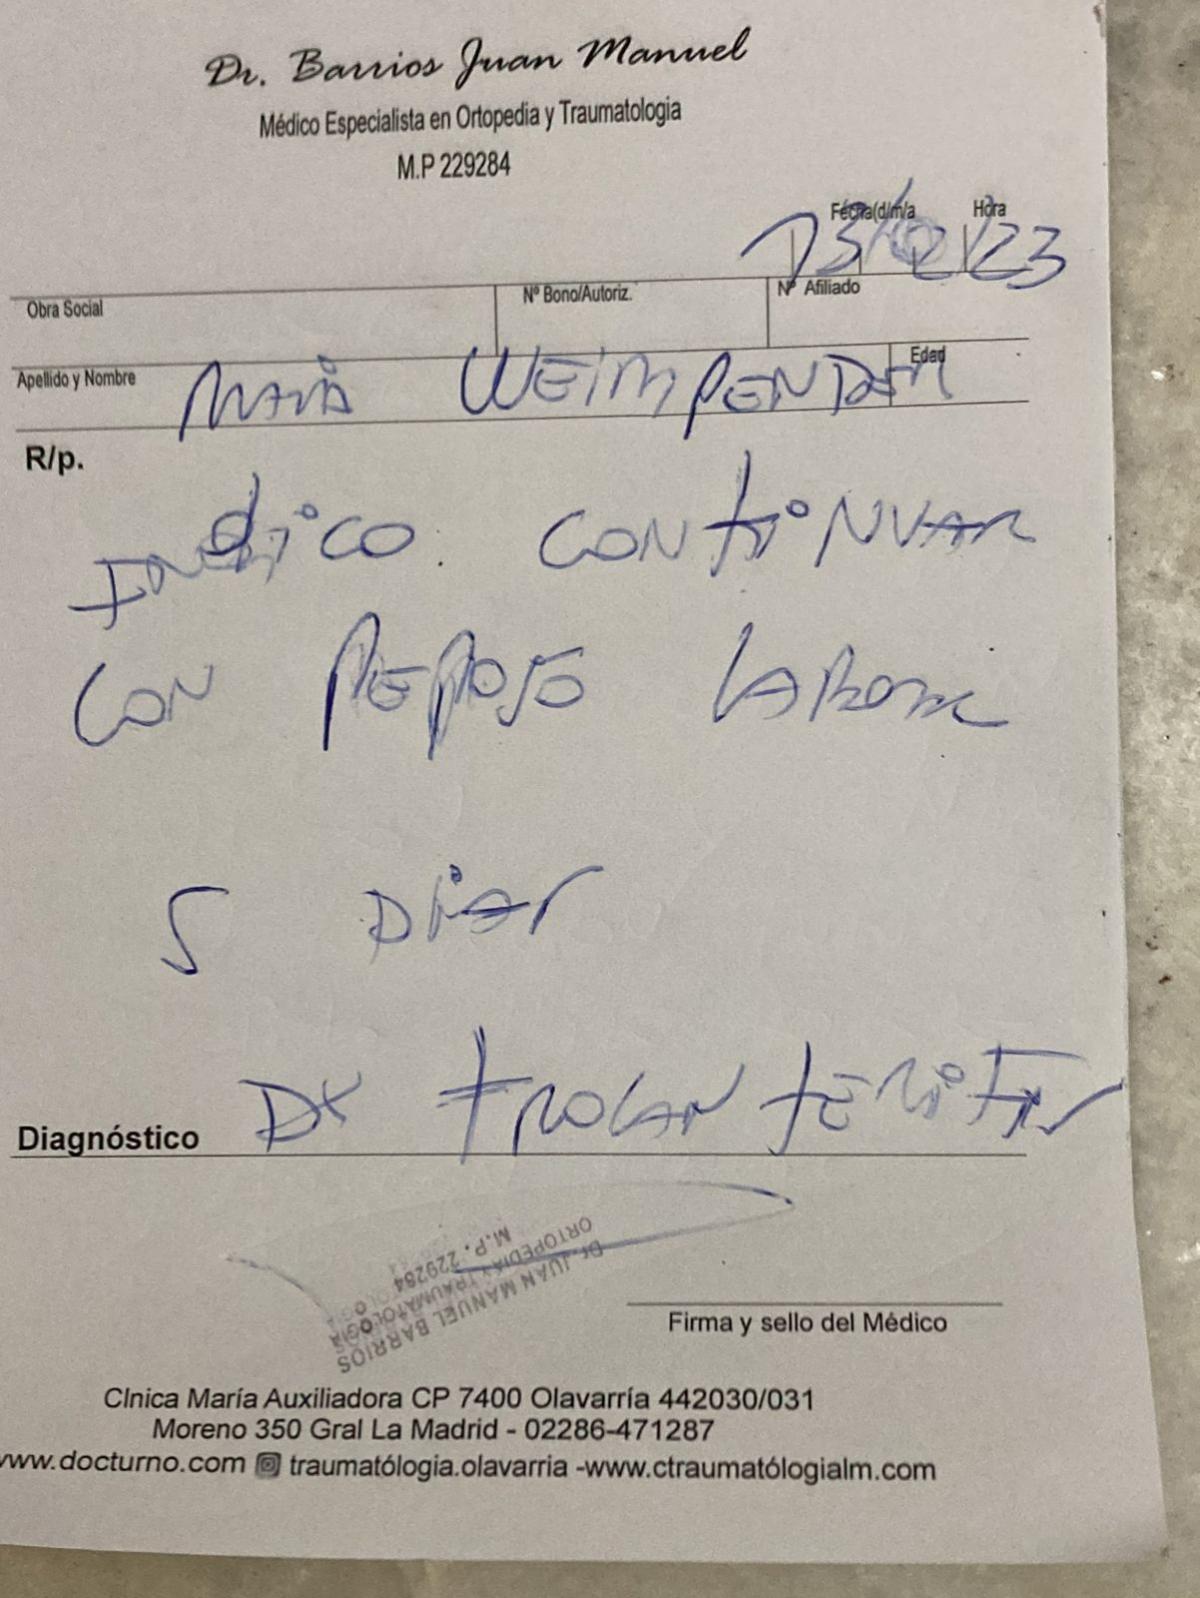 Dr. Barrios Juan Manuel
Médico Especialista en Ortopedia y Traumatologia
M.P 229284
Fecha(d/m/a Hora
13/ /23
Obra Social Nº Bono/Autoriz. Nº Afiliado
Apellido y Nombre Edad
R/p.
Indico: CONtiNUAR
CON REPOSO LABORAL
5 DIAS
Diagnóstico DX
Dr. JUAN MANUEL BARRIOS
ORTOPEDIA Y TRAUMATOLOGIA
M.P. 229284
Firma y sello del Médico
Clnica María Auxiliadora CP 7400 Olavarría 442030/031
Moreno 350 Gral La Madrid - 02286-471287
www.docturno.com traumatólogia.olavarria -www.ctraumatólogialm.com